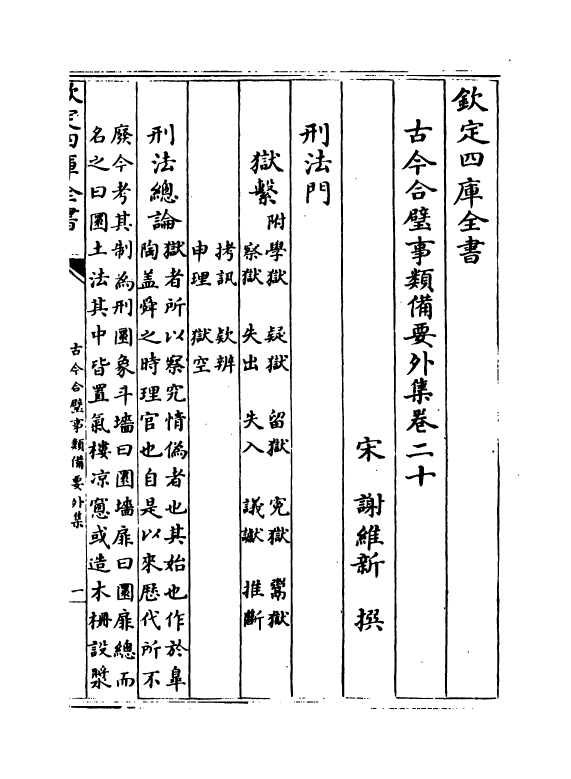 欽定四庫全書
古今合璧事類備要外集卷二十
宋 謝維新 撰
刑法門
獄繫附學獄 疑獄 留獄 寃獄 鬻獄
察獄 失出 失入 議讞 推斷
拷訊 欵辨
申理 獄空
刑法總論獄者所以察究情偽者也其始也作於臯
陶盖舜之時理官也自是以來歴代所不
廢今考其制為刑圜象斗墻曰圜墻扉曰圜扉總而
名之曰圜土法其中皆置氣樓凉窻或造木柵設漿
欽定四庫全書
古今合璧事類備要外集
一